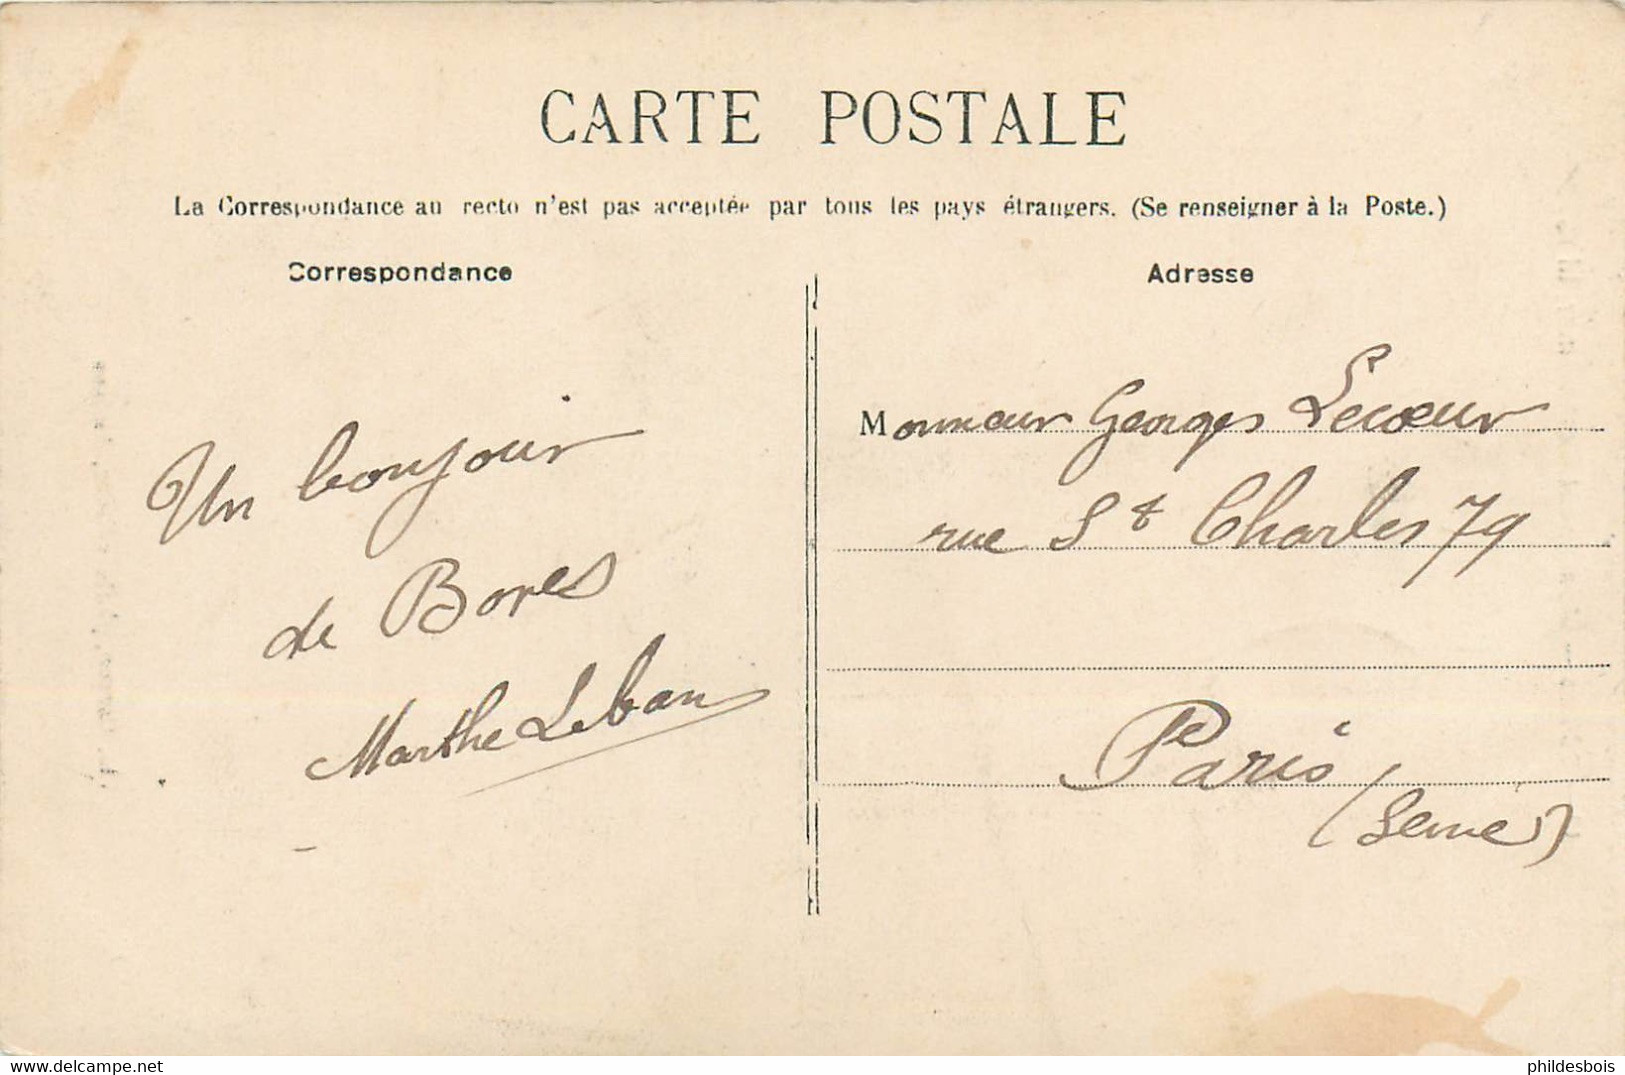 CARTE POSTALE
La Correspondance au recto n'est pas acceptée par tous les pays étrangers. (Se renseigner à la Poste.)
Correspondance
Adresse
Un bonjour
de Bores
Marthe Leban
Monsieur Georges Lecœur
rue St Charles 79
Paris
(Seine)
https://www.delcampe.net
phildesbois